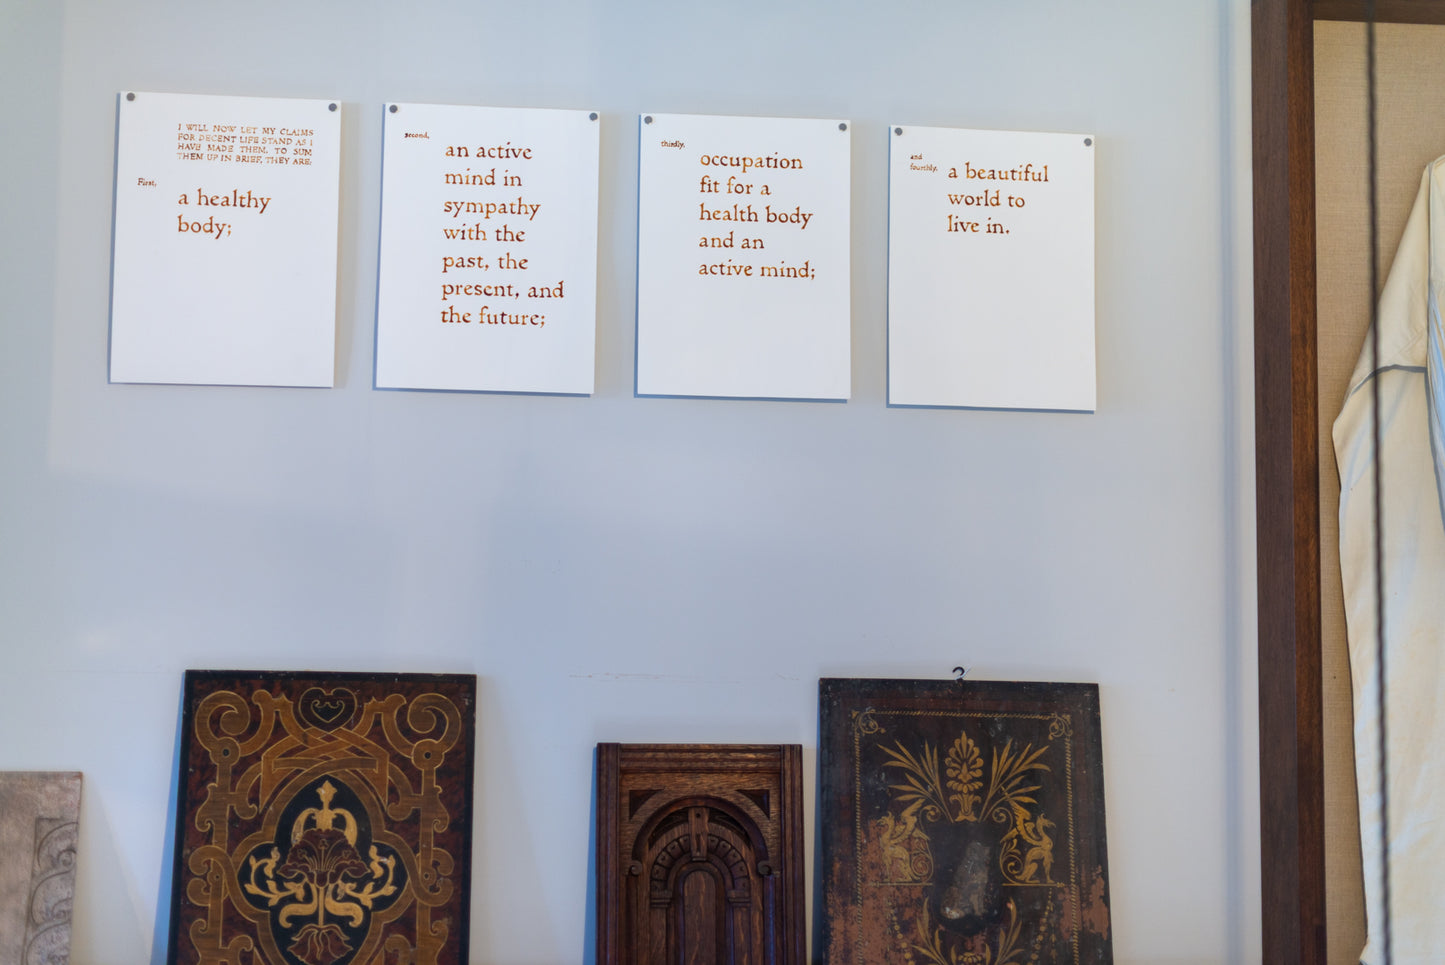 I WILL NOW LET MY CLAIMS
FOR DECENT LIFE STAND AS I
HAVE MADE THEM. TO SUM
THEM UP IN BRIEF, THEY ARE:
First,
a healthy
body;
second,
an active
mind in
sympathy
with the
past, the
present, and
the future;
thirdly,
occupation
fit for a
health body
and an
active mind;
and
fourthly,
a beautiful
world to
live in.